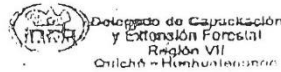 Delegado de Capacitación
y Extensión Forestal
Región VII
Quiché - Huehuetenango